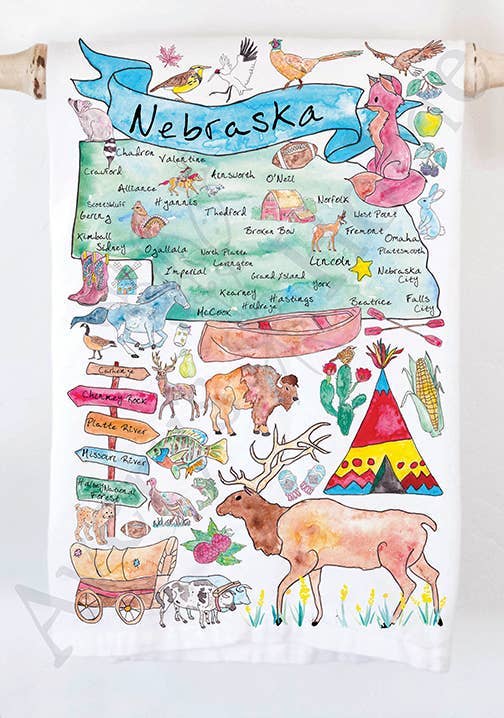 Nebraska
Chadron Valentine
Crawford
Ainsworth O'Neil
Alliance
Scottsbluff Hyannis Thedford Norfolk West Point
Gering
Broken Bow Fremont
Kimball Omaha
Sidney Ogallala North Platte Plattsmouth
Lexington Lincoln
Imperial Grand Island Nebraska
City
York
Kearney
Hastings
McCook Beatrice Falls
City
Carhenge
Chimney Rock
Platte River
Missouri River
Halsey National
Forest